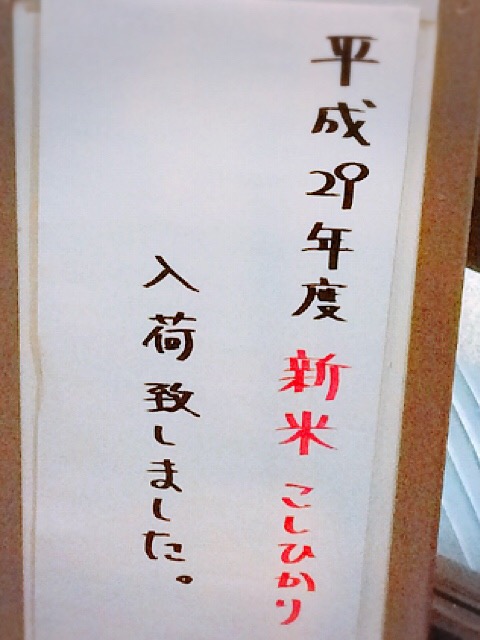 平成29年度 新米 こしひかり
入荷致しました。